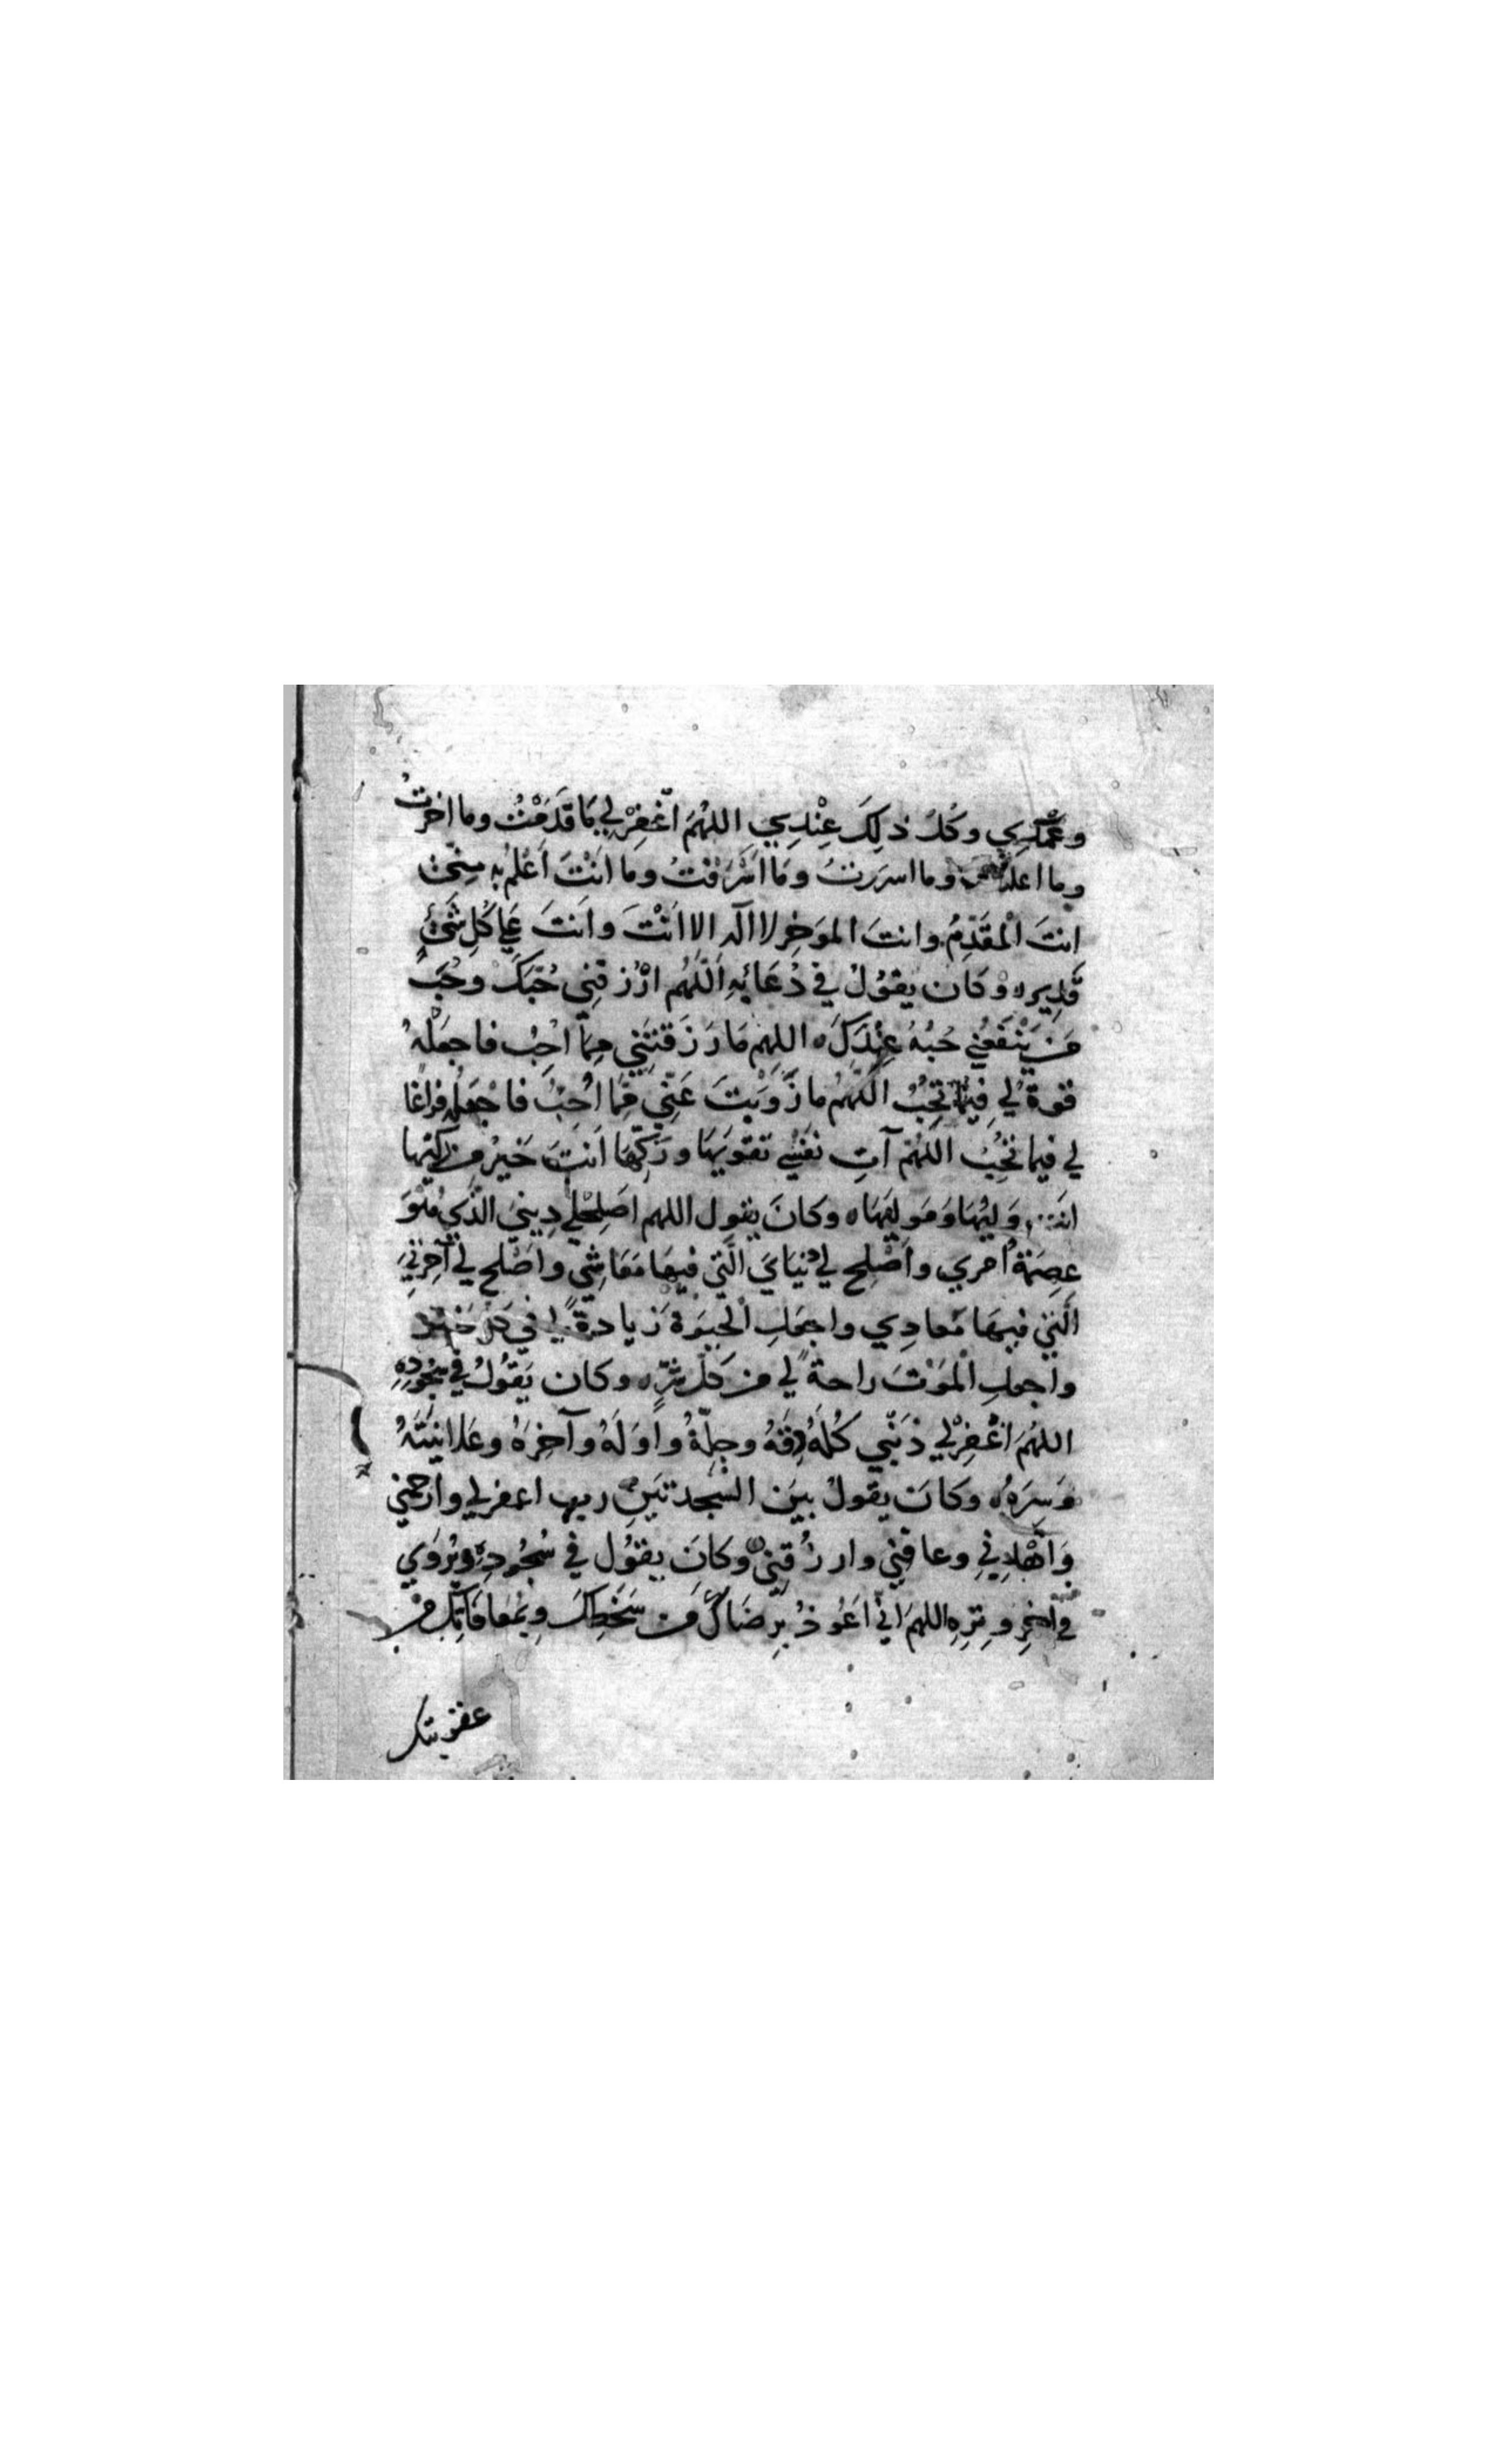 وعَمْدِي وكُلُ ذلِكَ عِنْدِي اللهُمَ اغْفِرْ لِي مَا قَدَمْتُ وما اخرتُ
وما اعلنت وما اسررتُ وَمَا اسْرَفْتُ وما انْتَ اَعْلمُ بِهِ مِنِّى
انتَ الْمقَدِمُ وانتَ الموَخِر لا اله الا انْتَ وانتَ عَلي كُلِ شَئٍ
قَدِير ه وكان يَقوُلُ في دُعَائِهِ اَللّهُم ارْزُقنِى حُبّكَ وحُبَّ
مَن يَنْفَعُنِي حُبُهُ عِنْدَكَ ه اللهم مَا رَزَقتَنِي مِمَّا اُحِبُ فاجعَلْهُ
قوةً لي فِيمَا تُحِبُ اللّهُم ما زَوَيْتَ عَنِّي مِمَّا اُحِبُّ فاجْعَلهُ فراغًا
لي فيما تُحِبُ اللهُمّ آتِ نفسْي تقويهَا وزَكِّهَا اَنتَ خَيْرُ من زكيّها
انتَ وَلِيُهَا وَمَوليهَا ه وكانَ يقول اللهم اصَلِحْ لي دِينيَ الّذي هُوَ
عِصمَةُ اَمري واَصْلِح لي دُنيَايَ الّتي فيهَا مَعَاشِي واَصْلح لي آخِرتي
الّتي فيهَا مَعادِي واجعَلِ الحيَوةَ زيادةً لي في كل خَيْر
واجعلِ الْمَوْتَ راحةً لي من كَلّ شَرٍّ ه وكان يَقوُلُ في سُجُودِهِ
اللهُمَ اغْفِرْلي ذَنْبي كُلَهُ دِقَهُ وجِلّهُ واَوَلَهُ وآخِرَهُ وعَلانِيَتَهُ
وَسِرَهُ ه وكانَ يقولُ بينَ السّجدتيَنِ رب اغفرلي وارحمني
وَاهْدِنِي وعافِني وارزُقنِى ه وكانَ يقوُل في سُجُودِهِ ويُروَي
في آخرِ وِترِهِ اللهمَ انّي اَعُوذُ بِرِضَاكَ مَن سَخَطِكَ وبِمُعافَاتِكَ من
عقوبتك